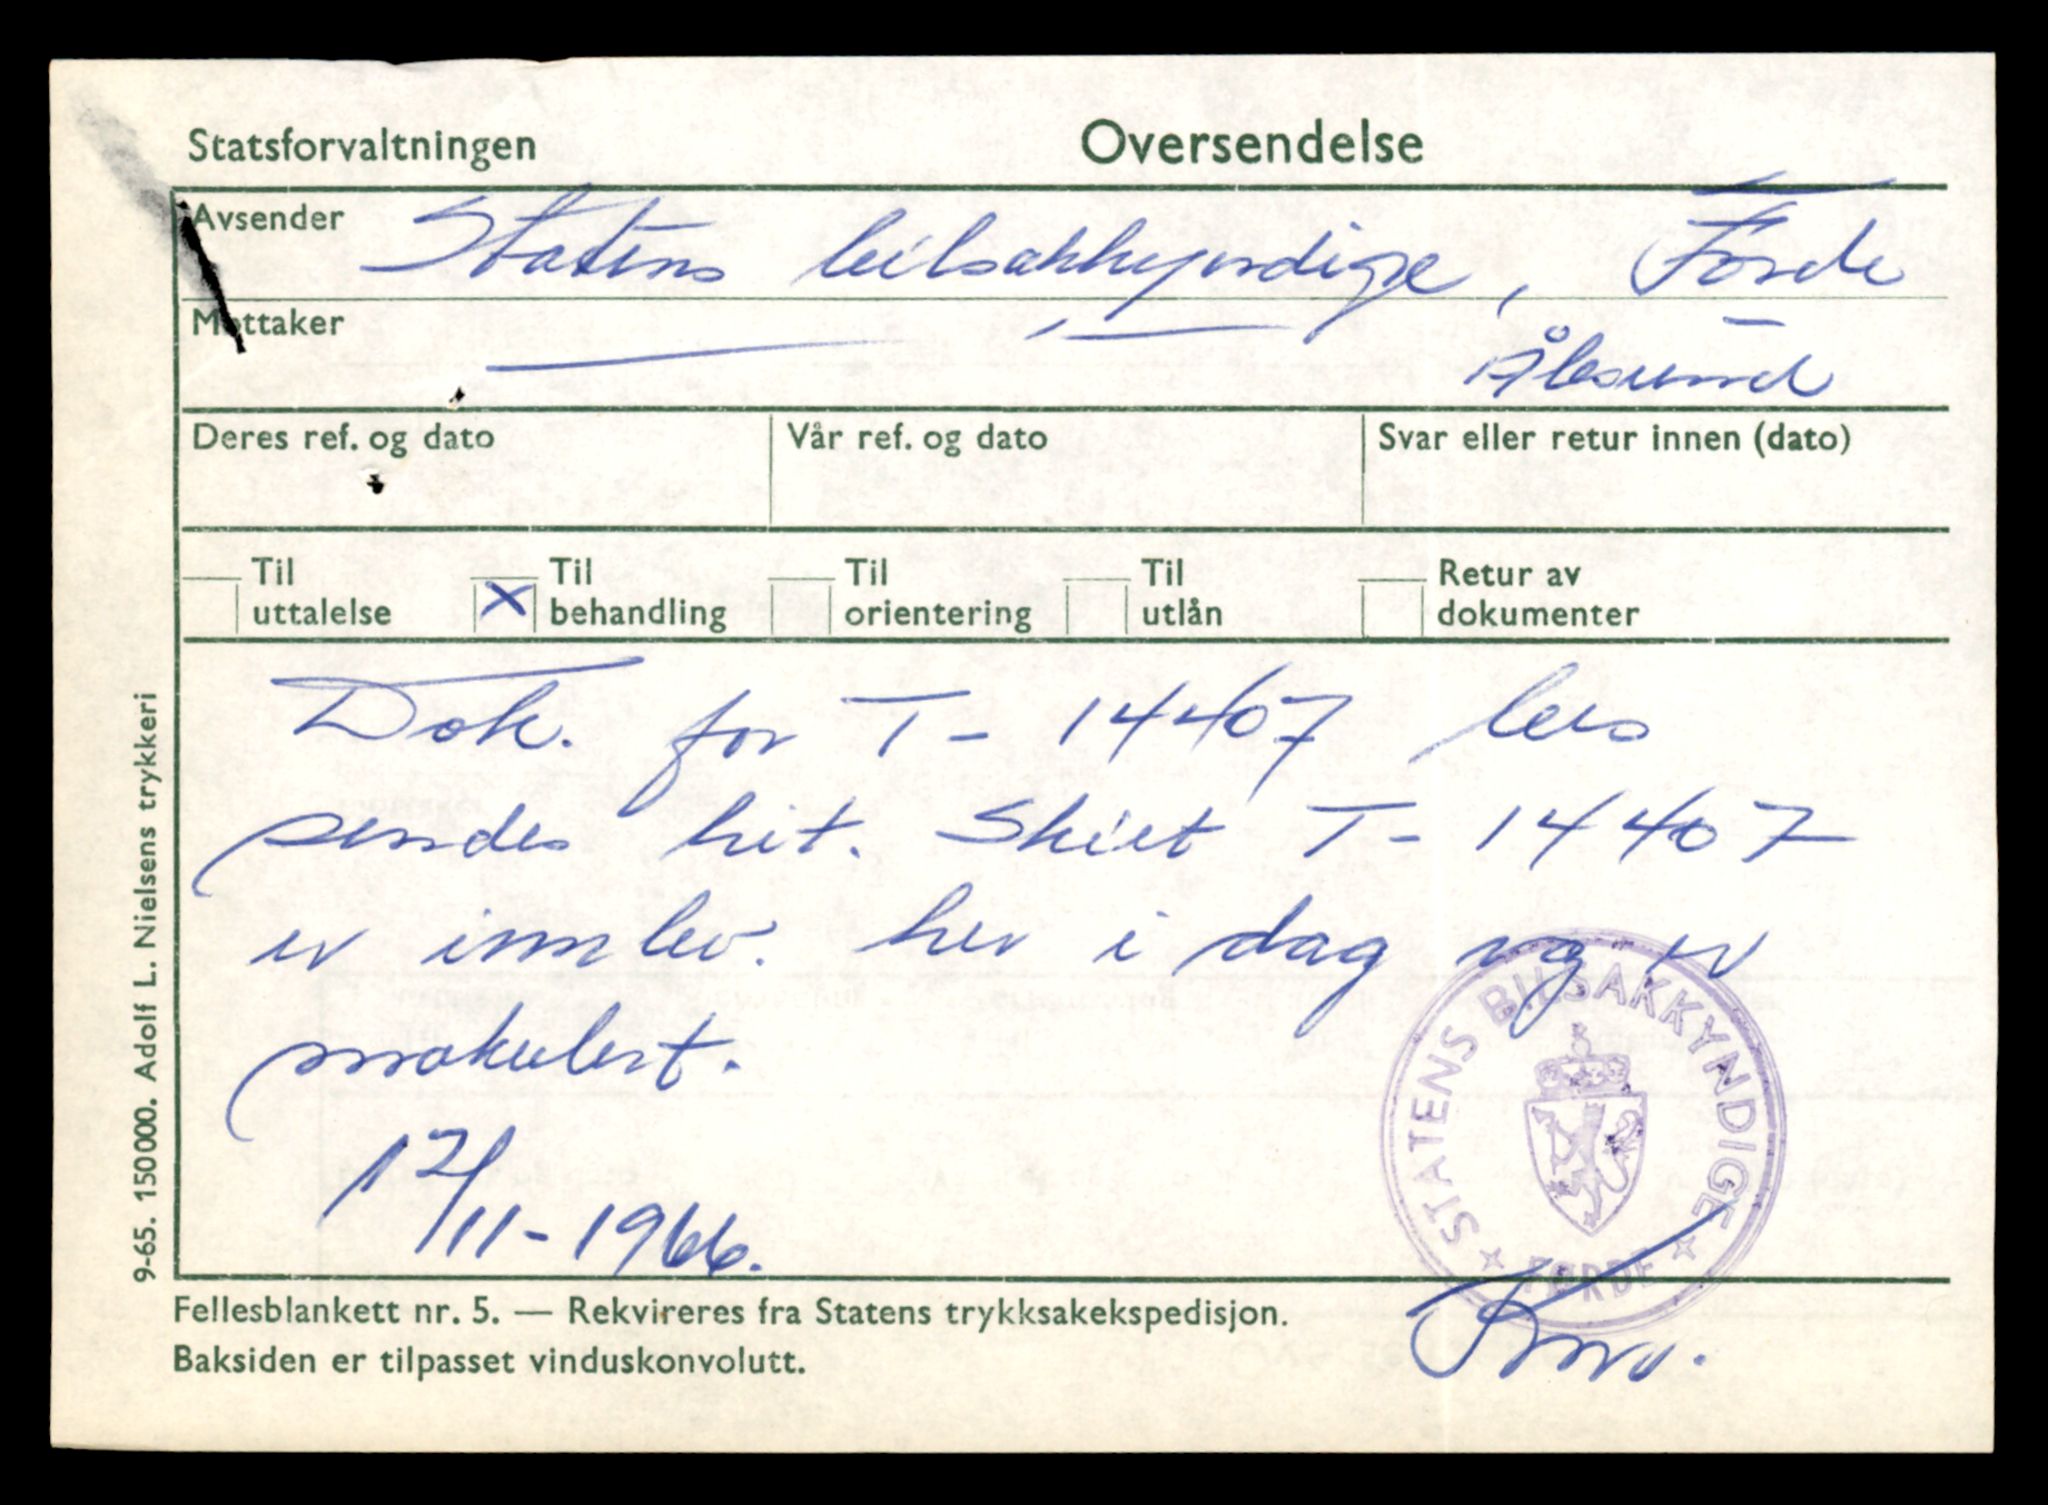 Statsforvaltningen Oversendelse
Avsender Statens bilsakkyndige, Førde
Mottaker Ålesund
Deres ref. og dato Vår ref. og dato Svar eller retur innen (dato)
Til uttalelse X Til behandling Til orientering Til utlån Retur av dokumenter
Dok. for T- 14407 bes
sendes hit. Skilt T- 14407
er innlev. her i dag og er
makulert.
12/11-1966.
STATENS BILSAKKYNDIGE
FØRDE
Fellesblankett nr. 5. — Rekvireres fra Statens trykksakekspedisjon.
Baksiden er tilpasset vinduskonvolutt.
9-65. 150000. Adolf L. Nielsens trykkeri